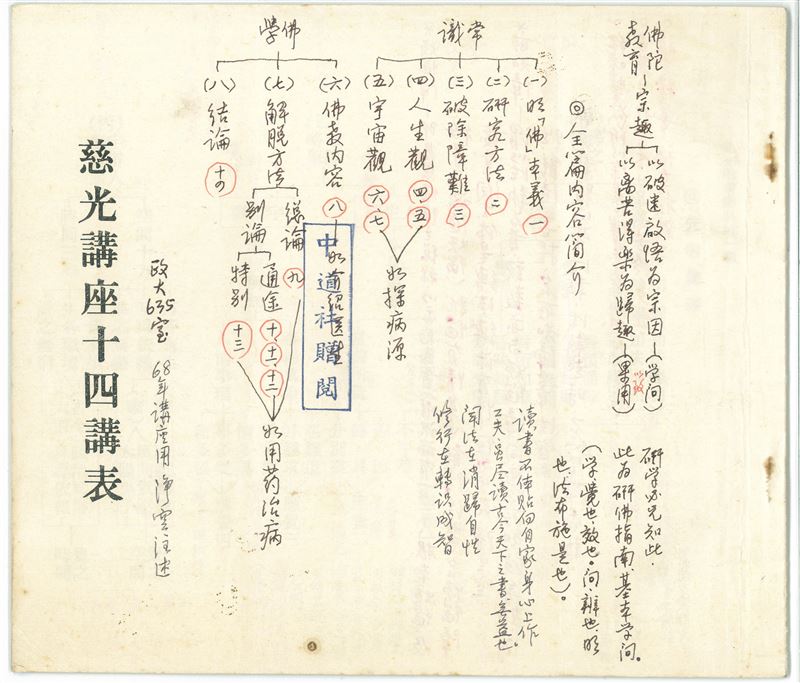 佛陀教育—宗趣
以破迷啟悟為宗因—(学问)
以离苦得樂為歸趣—(果用)
以致
研学必先知此．
此为研佛指南、基本学问。
(学、覺也、效也。问、辨也、明
也、法布施是也)。
◎全篇内容簡介
常識
(一)明「佛」本義 一
(二)研究方法 二
(三)破除障難 三
(四)人生觀 四、五
(五)宇宙觀 六、七
如探病源
學佛
(六)佛教内容 八
如介紹医生
(七)解脱方法
總論 九
别論
通途 十、十一、十二
特别 十三
如用药治病
(八)结論 十四
讀書不体貼向自家身心上作
工夫、虽尽读古今天下之書無益也。
闻法在消歸自性
修行在轉识成智
中道社贈閱
慈光講座十四講表
政大635室
68年講座用 淨空注述